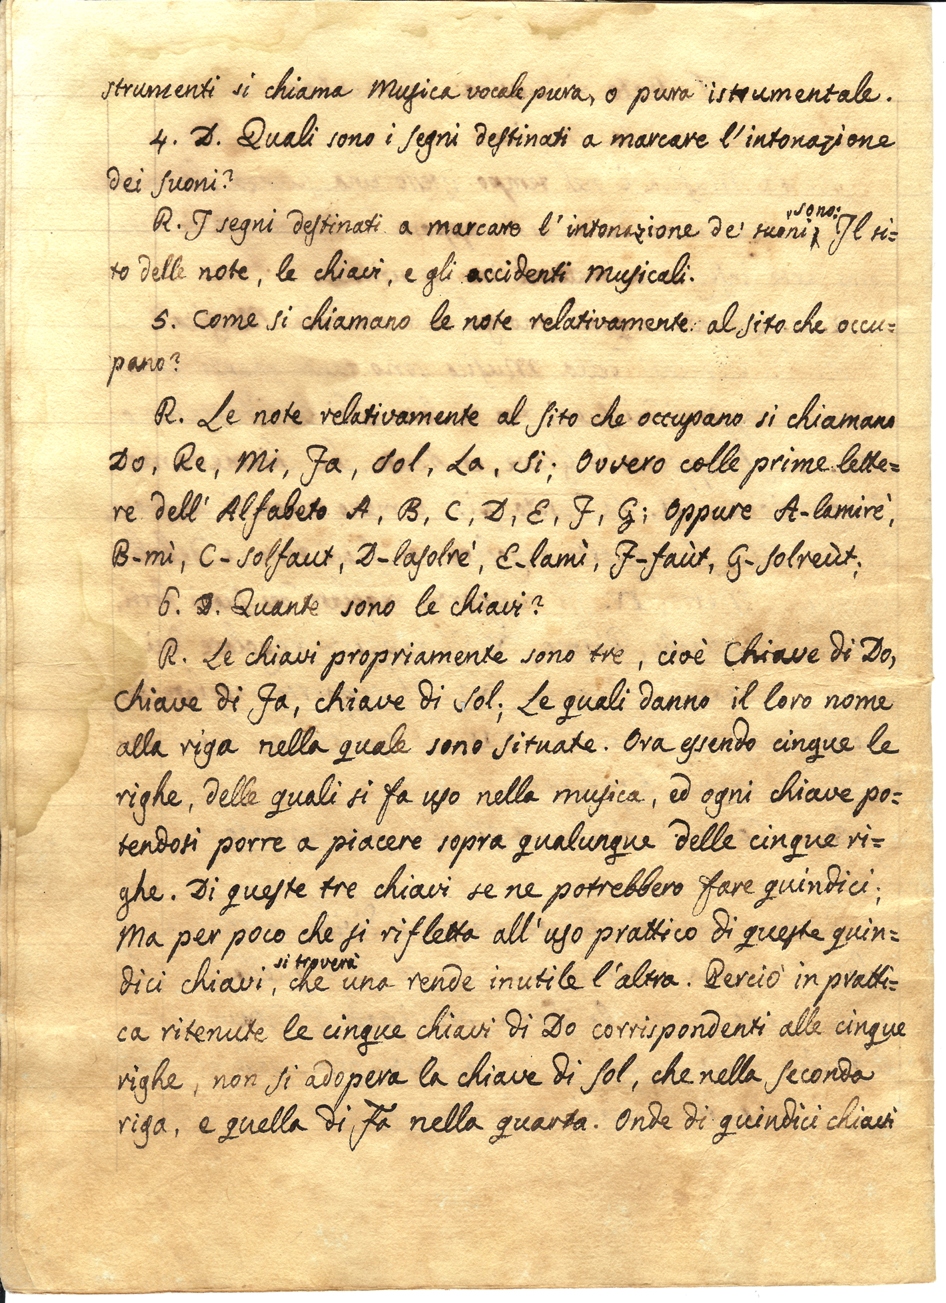 strumenti si chiama Musica vocale pura, o pura istrumentale.
4. D. Quali sono i segni destinati a marcare l'intonazione
dei suoni?
R. I segni destinati a marcare l'intonazione de' suoni sono: Il si=
to delle note, le chiavi, e gli accidenti Musicali.
5. Come si chiamano le note relativamente al sito che occu=
pano?
R. Le note relativamente al sito che occupano si chiamano
Do, Re, Mi, Fa, Sol, La, Si; Ovvero colle prime lette=
re dell' Alfabeto A, B, C, D, E, F, G; Oppure A-lamirè,
B-mì, C-solfaut, D-lasolrè, E-lamì, F-faùt, G-solreùt;
6. D. Quante sono le chiavi?
R. Le chiavi propriamente sono tre, cioè Chiave di Do,
Chiave di Fa, chiave di Sol; Le quali danno il loro nome
alla riga nella quale sono situate. Ora essendo cinque le
righe, delle quali si fa uso nella musica, ed ogni chiave po=
tendosi porre a piacere sopra qualunque delle cinque ri=
ghe. Di queste tre chiavi se ne potrebbero fare quindici;
Ma per poco che si rifletta all'uso prattico di queste quin=
dici chiavi, si troverà che una rende inutile l'altra. Perciò in pratti=
ca ritenute le cinque chiavi di Do corrispondenti alle cinque
righe, non si adopera la chiave di Sol, che nella seconda
riga, e quella di Fa nella quarta. Onde di quindici chiavi